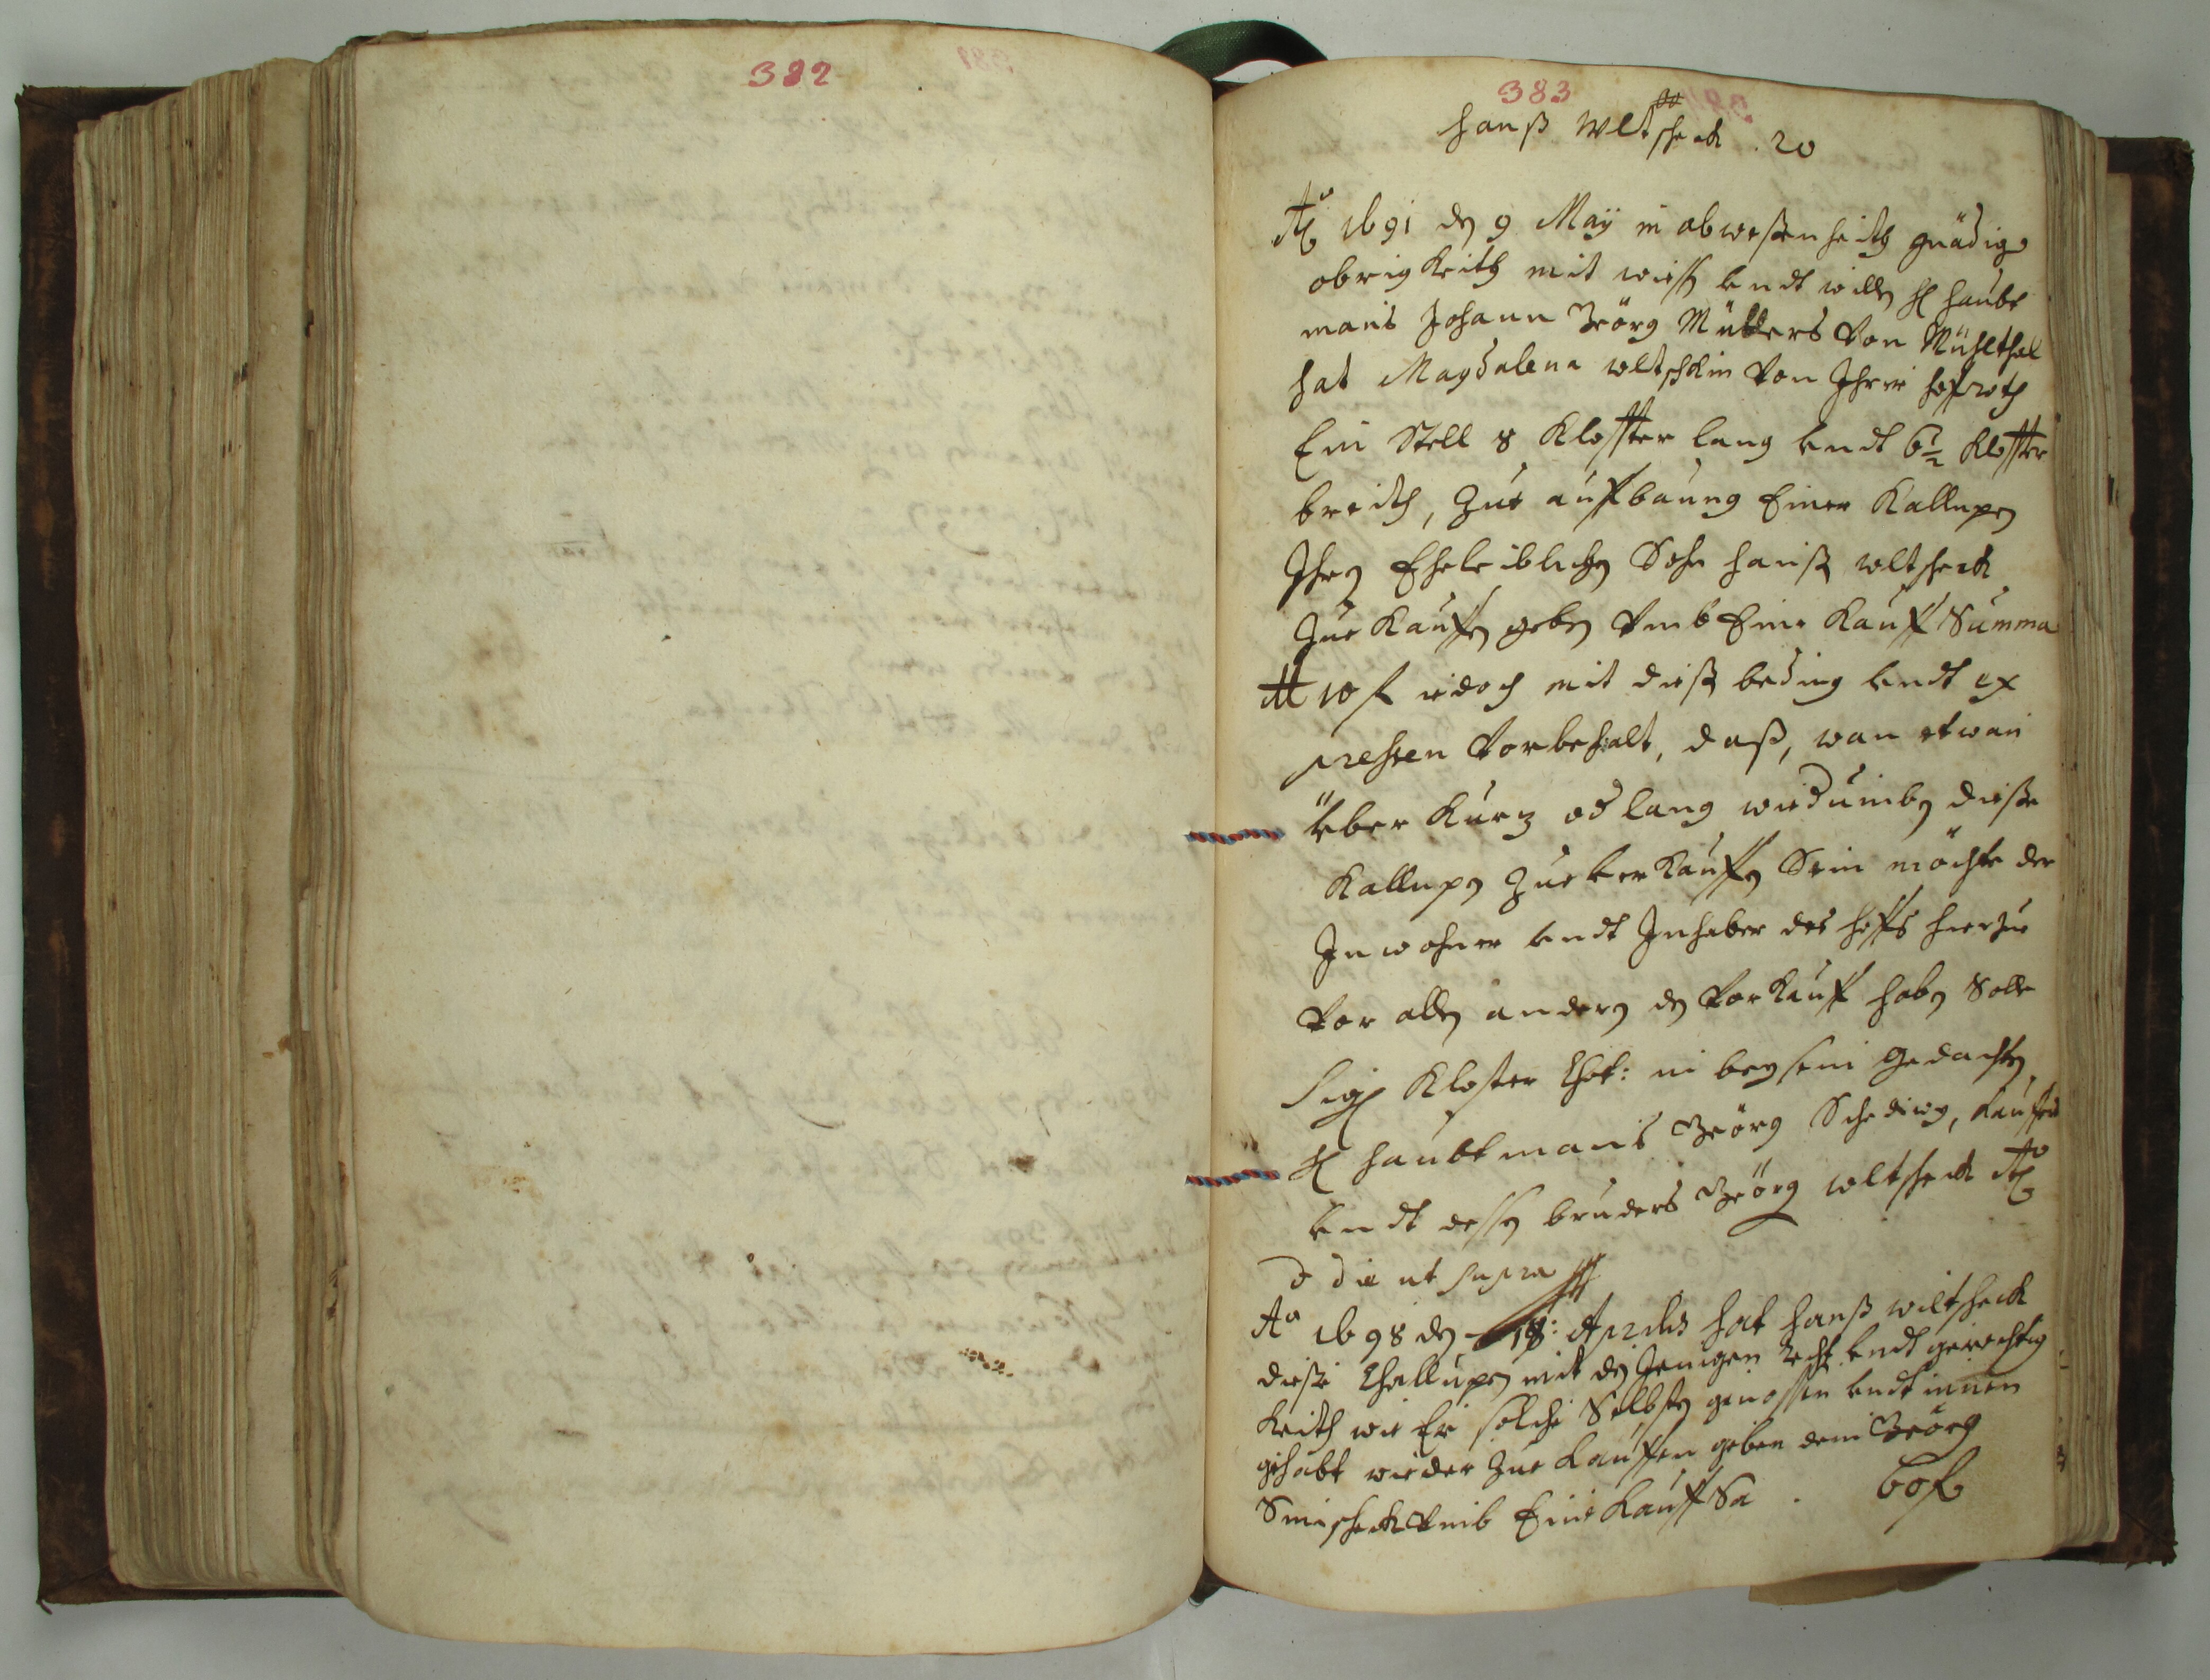 382
383
Hanß Wltscheck 20
Ao 1691 den 9 Maÿ in abweßenheith gnädige
obrigkeith mit wissen undt willen H haubt
mans Johann Geörg Müllers Von Mühlthal
hat Magdalena Wltschkin Von Ihren hoffrecht
Ein Stell 8 Klaffter lang undt 6½ Klaffter
breith, zur auffbauung Einer Kallupen
Ihren Eheleiblichen Sohn Hanß Wltscheck
Zue Kauffen geben Vmb Eine Kauff Summa
10 f iedoch mit dießen beding undt ex
pressen Vorbehalt, daß, wan etwan
Über Kurz od lang widumben dieße
Kallupen Zue verkauffen Sein möchte der
Inwohner undt Inhaber des hoffs hierzue
Vor allen andern den Vorkauff haben Solle
Sig Kloster Chot: in beysein gedachten
H haubtmans Geörg Schediwy, Kauffers
undt dessen bruders Geörg Wltscheck Ao
& die ut supra
Ao 1698 den 18: Aprilis hat Hanß Wiltscheck
dieße Challupen mit den Jenigen Recht undt gerechtig
Keith wie Er solche Selbsten genossen undt innen
gehabt wieder Zue Kauffen geben dem Geörg
Smischek Vmb Eine Kauff Sa . 60 f